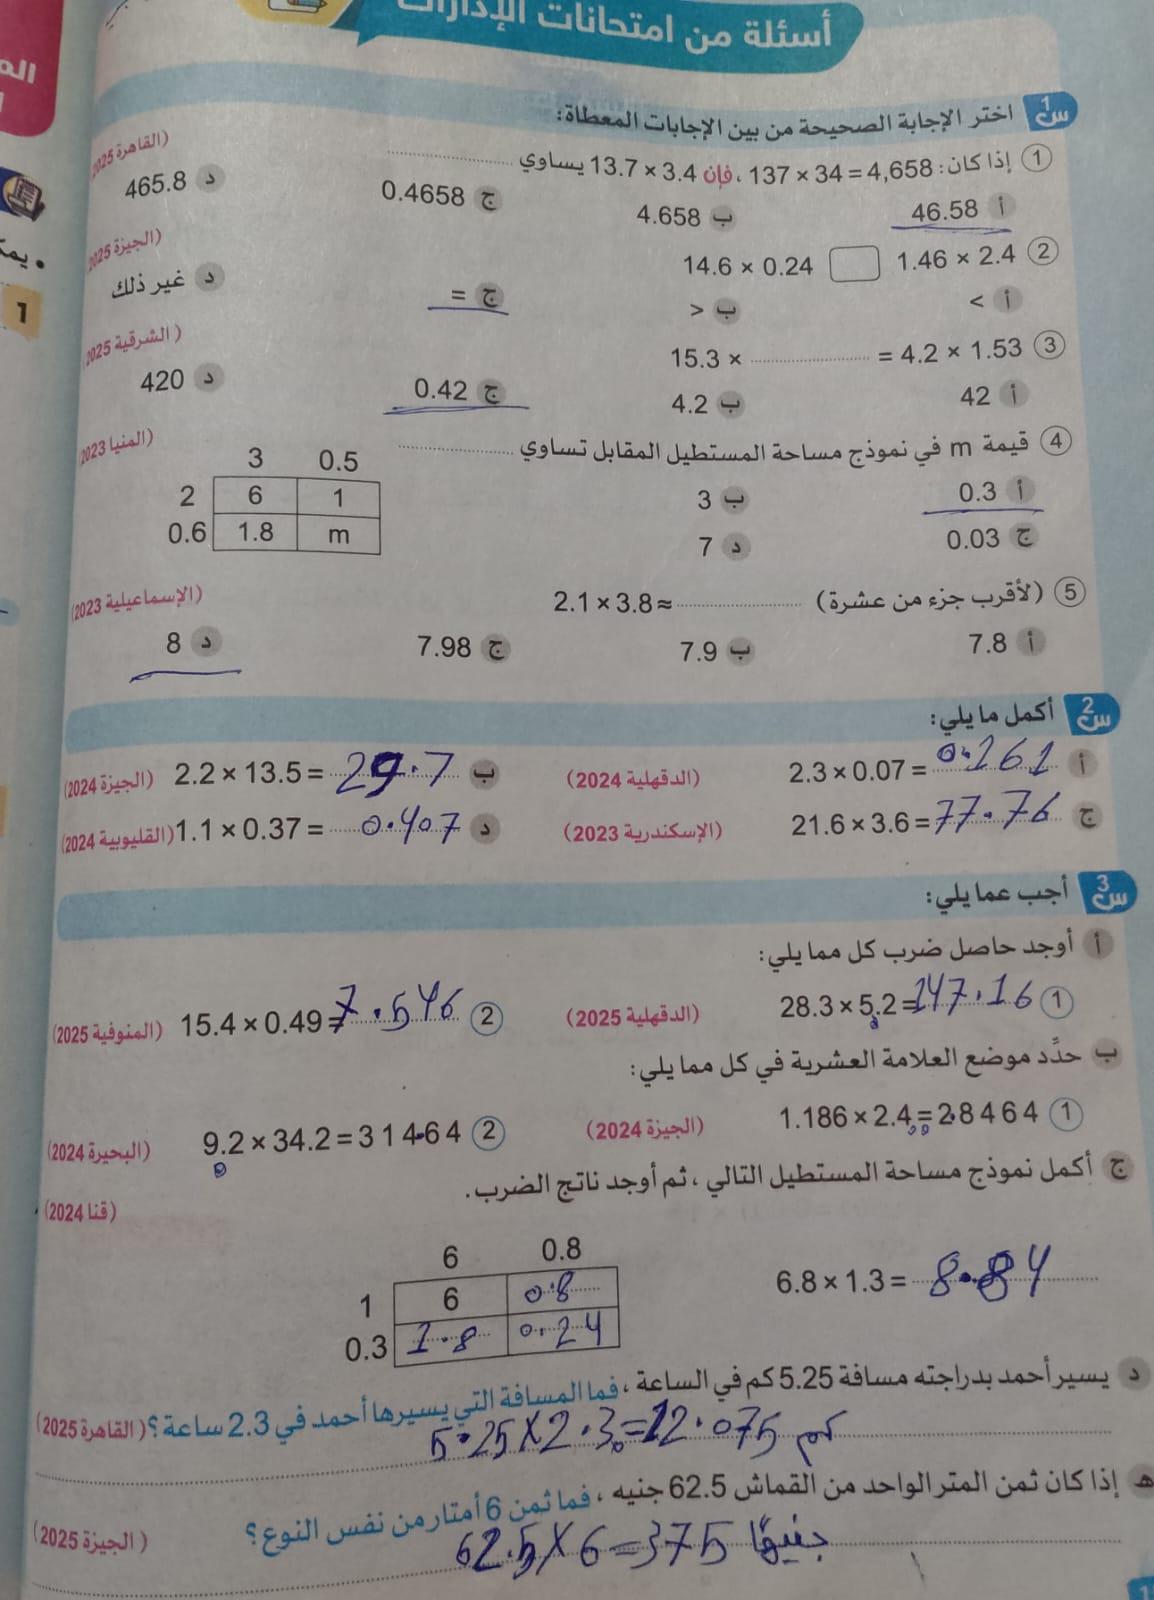 أسئلة من امتحانات الإدارات
س1 اختر الإجابة الصحيحة من بين الإجابات المعطاة:
1 إذا كان: 4,658 = 34 × 137 ، فإن 3.4 × 13.7 يساوي .......... (القاهرة 2025)
أ 46.58 ب 4.658 ج 0.4658 د 465.8
2 1.46 × 2.4 □ 14.6 × 0.24 (الجيزة 2025)
أ > ب < ج = د غير ذلك
3 15.3 × .......... = 4.2 × 1.53 (الشرقية 2025)
أ 42 ب 4.2 ج 0.42 د 420
4 قيمة m في نموذج مساحة المستطيل المقابل تساوي .......... (المنيا 2023)
أ 0.3 ب 3
ج 0.03 د 7
3 0.5
2 6 1
0.6 1.8 m
5 2.1 × 3.8 ≈ .......... (لأقرب جزء من عشرة) (الإسماعيلية 2023)
أ 7.8 ب 7.9 ج 7.98 د 8
س2 أكمل ما يلي:
أ 2.3 × 0.07 = 0.161 (الدقهلية 2024) ب 2.2 × 13.5 = 29.7 (الجيزة 2024)
ج 21.6 × 3.6 = 77.76 (الإسكندرية 2023) د 1.1 × 0.37 = 0.407 (القليوبية 2024)
س3 أجب عما يلي:
أ أوجد حاصل ضرب كل مما يلي:
1 28.3 × 5.2 = 147.16 (الدقهلية 2025) 2 15.4 × 0.49 = 7.546 (المنوفية 2025)
ب حدِّد موضع العلامة العشرية في كل مما يلي:
1 1.186 × 2.4 = 2.8464 (الجيزة 2024) 2 9.2 × 34.2 = 314.64 (البحيرة 2024)
ج أكمل نموذج مساحة المستطيل التالي، ثم أوجد ناتج الضرب. (قنا 2024)
6.8 × 1.3 = 8.84
6 0.8
1 6 0.8
0.3 1.8 0.24
د يسير أحمد بدراجته مسافة 5.25 كم في الساعة، فما المسافة التي يسيرها أحمد في 2.3 ساعة؟ (القاهرة 2025)
5.25 × 2.3 = 12.075 كم
هـ إذا كان ثمن المتر الواحد من القماش 62.5 جنيه، فما ثمن 6 أمتار من نفس النوع؟ (الجيزة 2025)
62.5 × 6 = 375 جنيهًا
1